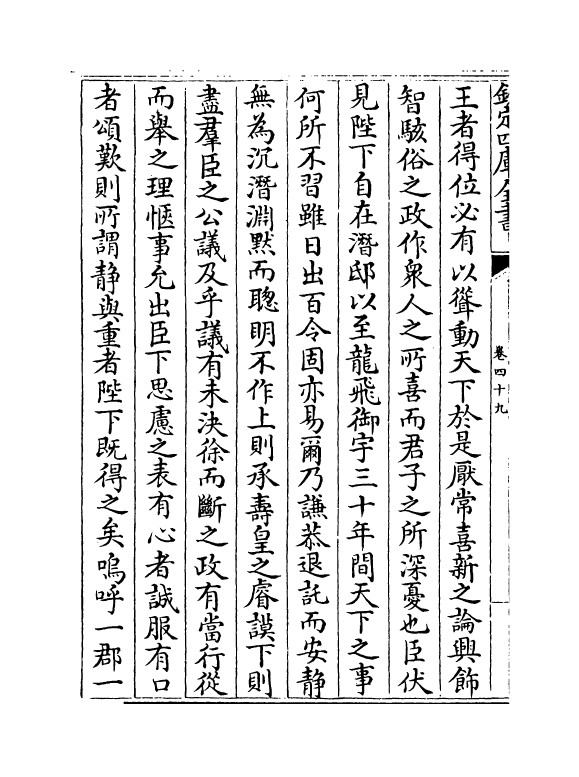 欽定四庫全書
卷四十九
王者得位必有以聳動天下於是厭常喜新之論興飾
智駭俗之政作衆人之所喜而君子之所深憂也臣伏
見陛下自在潛邸以至龍飛御宇三十年間天下之事
何所不習雖日出百令固亦易爾乃謙恭退託而安静
無為沉潛淵默而聰明不作上則承壽皇之睿謨下則
盡羣臣之公議及乎議有未決徐而斷之政有當行從
而舉之理愜事允出臣下思慮之表有心者誠服有口
者頌歎則所謂静與重者陛下既得之矣嗚呼一郡一